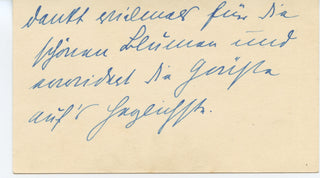 dankt vielmals für die
schönen Blumen und
erwidert die Grüße
auf's herzlichste.